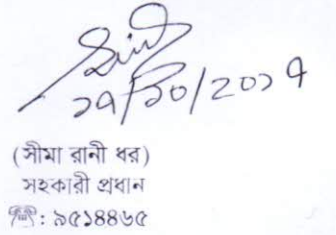 ১৭/১০/২০১৭
(সীমা রানী ধর)
সহকারী প্রধান
☎: ৯৫১৪৪৬৫